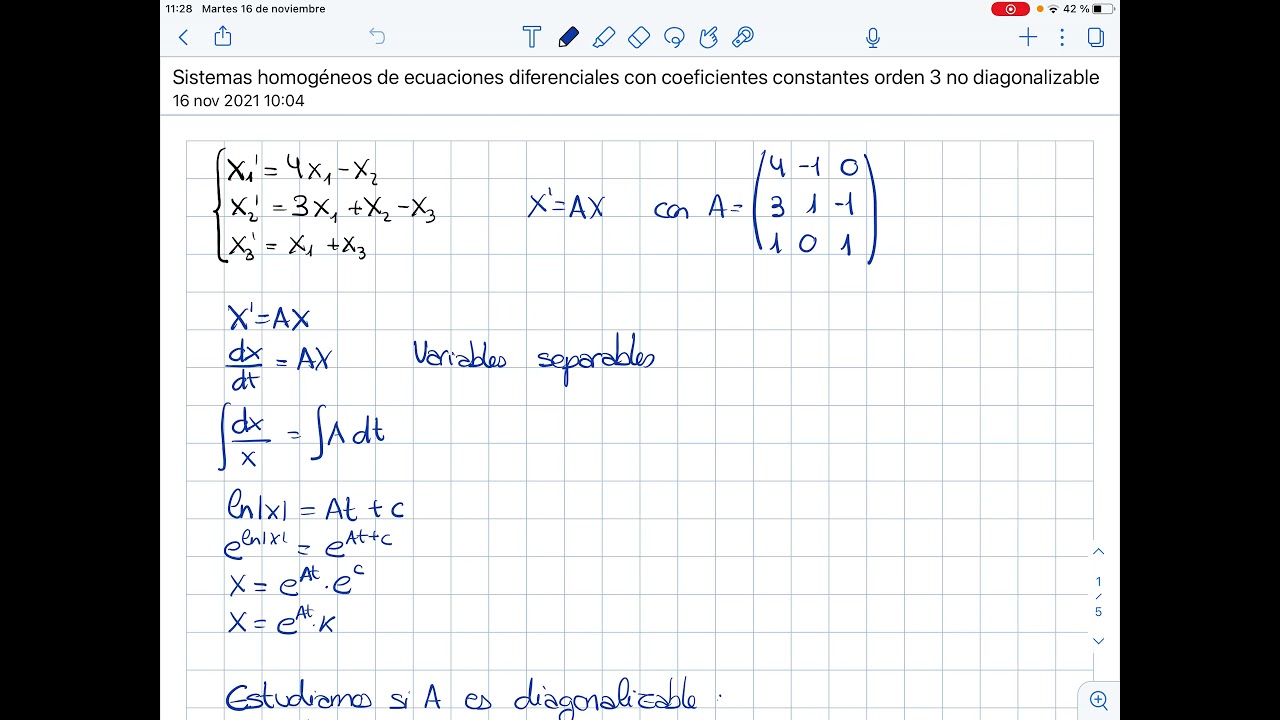 11:28 Martes 16 de noviembre 42 %
T
Sistemas homogéneos de ecuaciones diferenciales con coeficientes constantes orden 3 no diagonalizable
16 nov 2021 10:04
x₁' = 4x₁ - x₂
x₂' = 3x₁ + x₂ - x₃
x₃' = x₁ + x₃
X' = AX con A =
4 -1 0
3 1 -1
1 0 1
X' = AX
dx/dt = AX Variables separables
∫ dx/x = ∫ A dt
ln|x| = At + c
e^(ln|x|) = e^(At+c)
X = e^(At) · e^c
X = e^(At) · K
Estudiamos si A es diagonalizable.
1
/
5